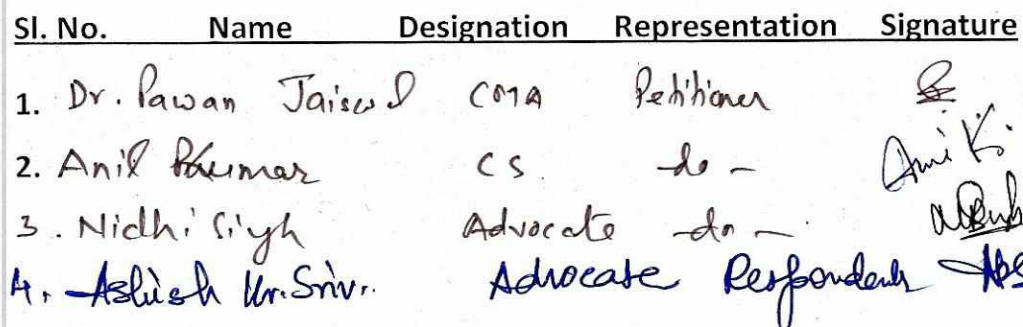 Sl. No. Name Designation Representation Signature
1. Dr. Pawan Jaiswal CMA Petitioner
2. Anil Kumar CS. -do-
3. Nidhi Singh Advocate -do-
4. Ashish Kr. Sriv. Advocate Respondents